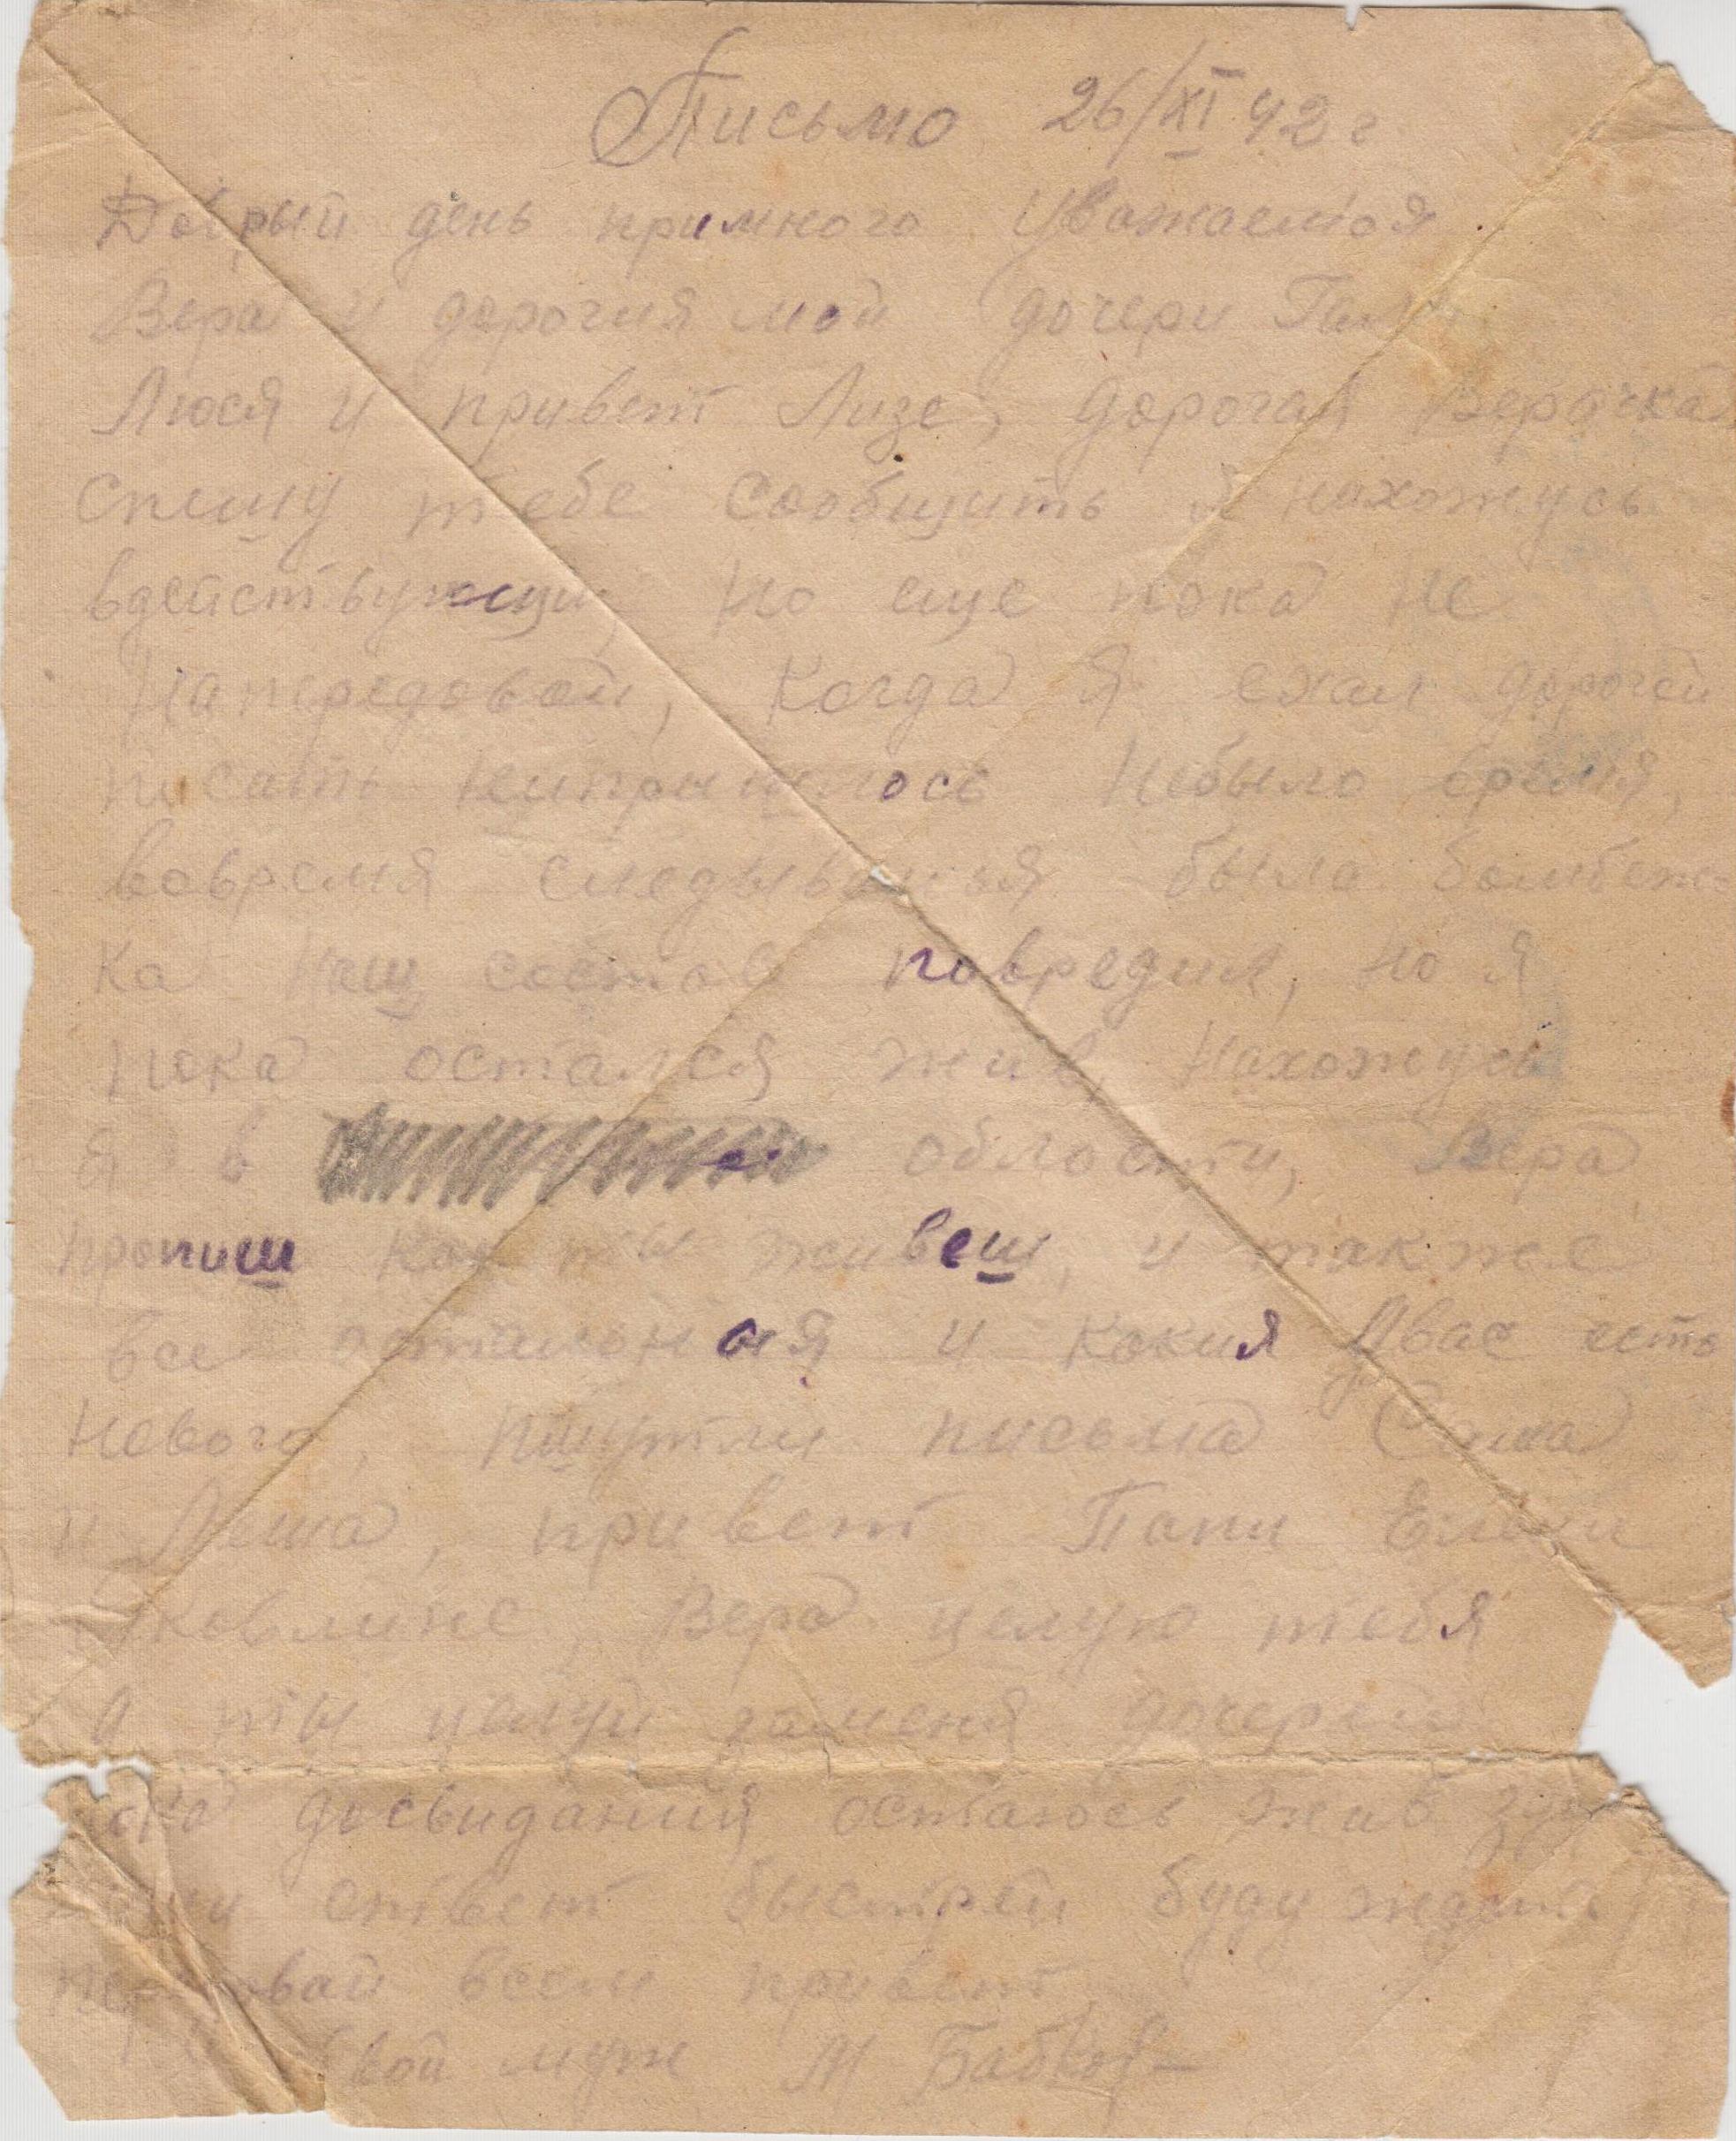 Письмо 26/XI 42 г.
Добрый день примного Уважаемоя
Вера и дорогия мои дочери
Люся и привет Лизе, дорогая Верочка
Спешу тебе сообщить Я нахожусь
вдействующи, Но еще пока не
Напередовой, Когда Я ехал дорогой
писать Небыло время,
вовремя была бомбеж
ка Наш состав повредил, но я
пока остался жив, Нахожусь
Я в области, Вера
пропиш как ты живеш, и также
все и какия Увас есть
Новога, пишутли письма Саша
и Леша, привет Папи
Яковлине, Вера целую тебя
а ты целуй заменя дочерей
пока досвидания остаюсь жив
ответ быстрей буду ждать
передовай всем привет
Твой муж М Бабков